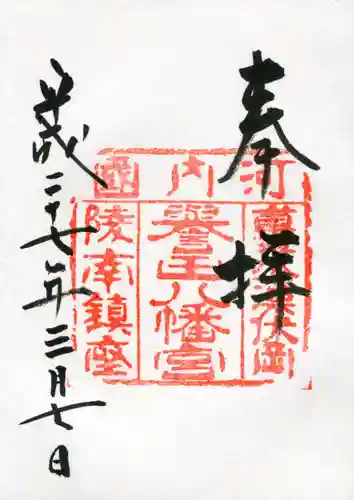 奉拝
河内國
藻伏岡
譽田八幡宮
陵南鎮座
平成二十七年三月七日